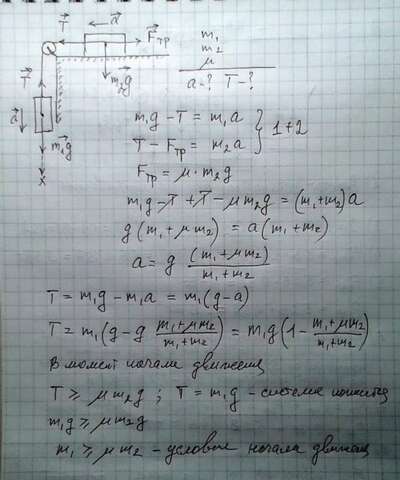 T a⃗ F⃗тр
m₂g⃗
T⃗
a⃗
m₁g⃗
x
m₁
m₂
μ
a-? T-?
m₁g - T = m₁a
T - Fтр = m₂a } 1+2
Fтр = μ·m₂g
m₁g - T + T - μm₂g = (m₁+m₂)a
g(m₁ + μm₂) = a(m₁+m₂)
a = g (m₁+μm₂)/(m₁+m₂)
T = m₁g - m₁a = m₁(g-a)
T = m₁(g - g (m₁+μm₂)/(m₁+m₂)) = m₁g(1 - (m₁+μm₂)/(m₁+m₂))
В момент начала движения
T ≥ μm₂g ; T = m₁g - система покоится
m₁g ≥ μm₂g
m₁ ≥ μm₂ - условие начала движения